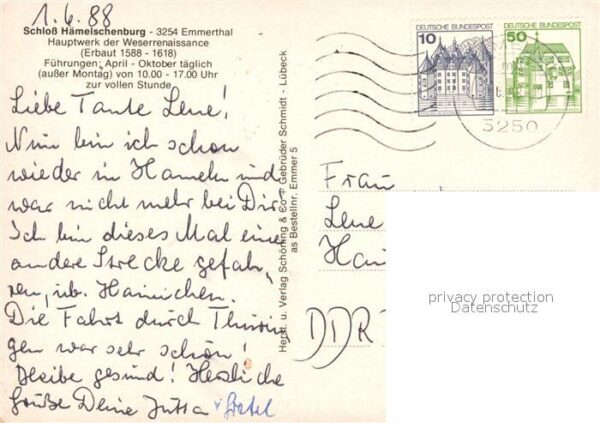 1.6.88
Schloß Hämelschenburg - 3254 Emmerthal
Hauptwerk der Weserrenaissance
(Erbaut 1588 - 1618)
Führungen: April - Oktober täglich
(außer Montag) von 10.00 - 17.00 Uhr
zur vollen Stunde
Liebe Tante Lene!
Nun bin ich schon
wieder in Hameln und
war nicht mehr bei Dir.
Ich bin dieses Mal eine
andere Strecke gefah-
ren, üb. Hainichen.
Die Fahrt durch Thürin-
gen war sehr schön!
Bleibe gesund! Herzliche
Grüße Deine Jutta
Herst. u. Verlag Schöning & Co + Gebrüder Schmidt - Lübeck
as Bestellnr. Emmer 5
10
DEUTSCHE BUNDESPOST
50
DEUTSCHE BUNDESPOST
3250
Frau
Lene
Hai
DDR
privacy protection
Datenschutz